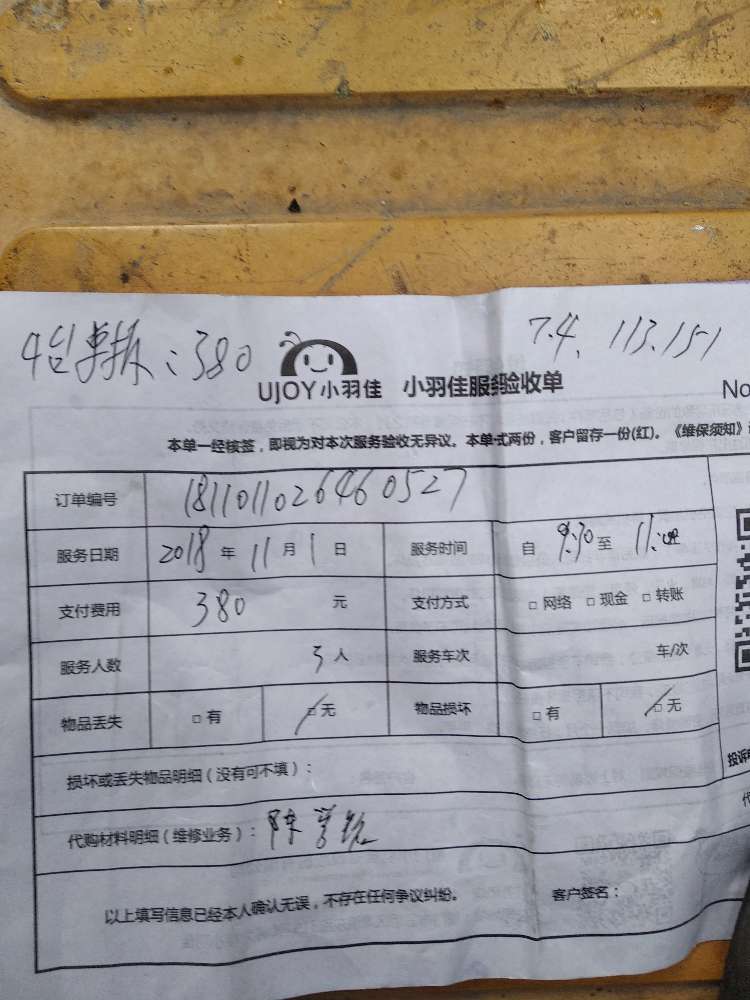 4台单拆：380
7.4、113.151
UJOY小羽佳 小羽佳服务验收单
No
本单一经核签，即视为对本次服务验收无异议。本单一式两份，客户留存一份(红)。《维保须知》
订单编号 1811011026460527
服务日期 2018 年 11 月 1 日 服务时间 自 9:30 至 11:
支付费用 380 元 支付方式 □ 网络 □ 现金 □ 转账
服务人数 3 人 服务车次 车/次
物品丢失 □ 有 □ 无 物品损坏 □ 有 □ 无
损坏或丢失物品明细（没有可不填）：
投诉
代购材料明细（维修业务）：陈
代
以上填写信息已经本人确认无误，不存在任何争议纠纷。 客户签名：